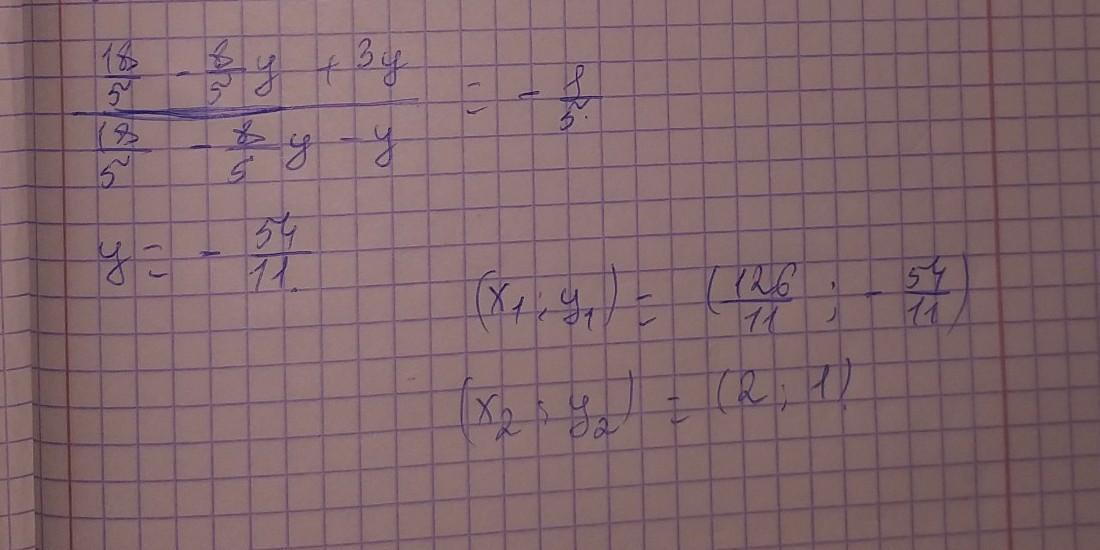 18/5 - 8/5 y + 3y
= - 8/5
18/5 - 8/5 y - y
y = - 54/11.
(x₁; y₁) = (126/11; - 54/11)
(x₂; y₂) = (2; 1)